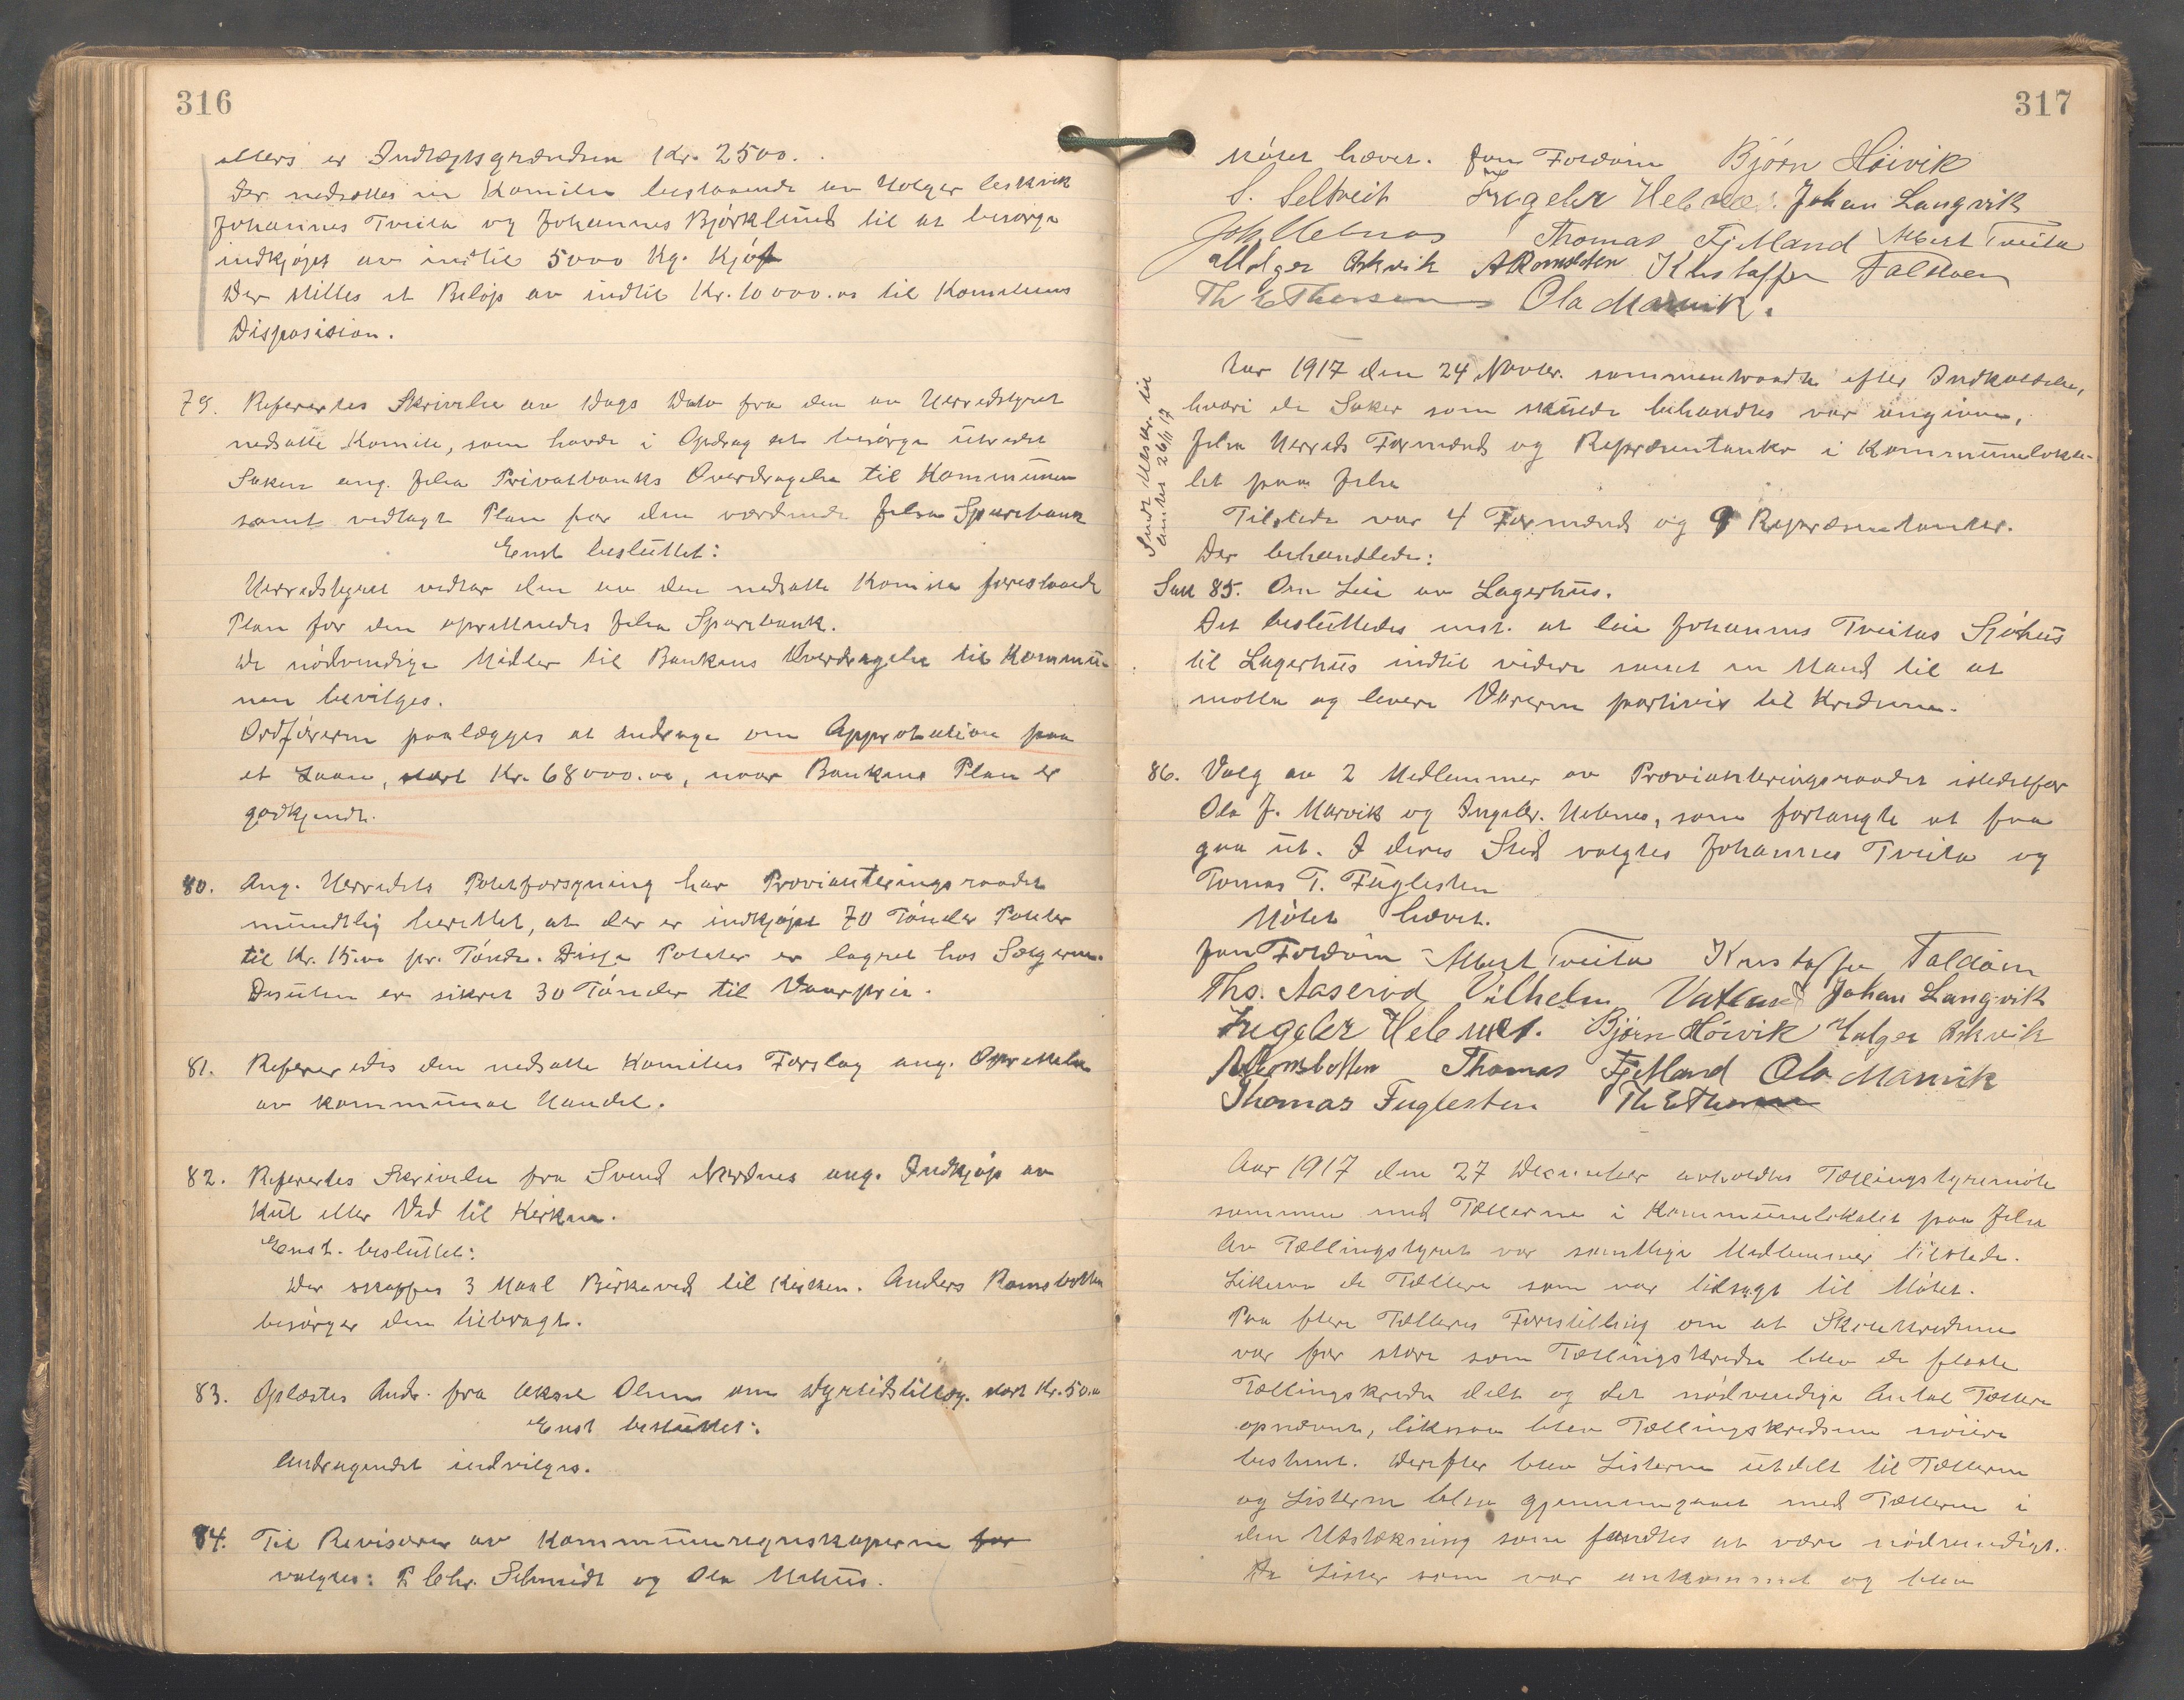 316
ellers er Indtægtsgrændsen Kr. 2500.
Der nedsættes en Komite bestaaende av Holger Eskvik
Johannes Tveita og Johannes Bjørklund til at besørge
indkjøpt av indtil 5000 Kg. Kjøt
Der stilles et Beløp av indtil Kr. 10000.00 til Komiteens
Disposision.
79. Refertes Skrivelse av Dags Dato fra den av Herredstyret
nedsatte Komite, som havde i Opdrag at besørge utredet
Saken ang. Jelsa Privatbanks Overdragelse til Kommunen
samt vedlagt Plan for den vordende Jelsa Sparebank
Enst besluttet:
Herredstyret vedtar den av den nedsatte Komite foreslaaede
Plan for den oprettnedes Jelsa Sparebank.
De nødvendige Midler til Bankens Overdragelse til Kommu-
nen bevilges.
Ordføreren paalægges at andrage om Approbation paa
et Laan, stort Kr. 68000.00, naar Bankens Plan er
godkjendt.
80. Ang. Herredets Potetforsyning har Provianteringsraadet
mundtlig berettet, at der er indkjøpt 70 Tønder Poteter
til Kr. 15.00 pr. Tønde. Disse Poteter er lagret hos Sælgerne.
Desuten er sikret 30 Tønder til Vaarpris.
81. Refereredes den nedsatte Komites Forslag ang. Oprettelse
av kommunal Handel.
82. Refertes Skrivelse fra Svend Nordnes ang. Indkjøp av
Kul eller Ved til Kirken.
Enst. besluttet:
Der skaffes 3 Maal Birkeved til Kirken. Anders Ramsbotten
besørger den tilbragt.
83. Oplæstes Andr. fra Aksel Olsen om Dyrtidstillæg. stort Kr. 50.00
Enst besluttet:
Andragendet indvilges.
84. Til Revisorer av Kommuneregnskaperne for
valgtes: P. Chr. Schmidt og Ola Mehus.
317
Møtet hævet. Jon Foldøen Bjørn Høivik
S. Selbveit Ingebr Hebnes. Johan Langvik
Joh Hebnes Thomas Fjetland Albert Tveita
Holger Eskvik A Ramsbotten Kristoffer Foldøen
Th E Thorsen Ola Marvik.
Sendt Utskr. til
Amtet 26/11 17
Aar 1917 den 24 Novbr. sammentraadte efter Indkaldelse,
hvori de Saker som skulde behandles var angivne,
Jelsa Herreds Formænd og Repræsentanter i Kommuneloka-
let paa Jelsa
Tilstede var 4 Formænd og 9 Repræsentanter.
Der behandlede:
Sak 85. Om Leie av Lagerhus.
Det besluttedes enst. at leie Johannes Tveitas Sjøhus
til Lagerhus indtil videre samt en Mand til at
motta og levere Varerne partivis til Kredsene.
86. Valg av 2 Medlemmer av Provianteringsraadet istedetfor
Ola J. Marvik og Ingebr. Hebnes, som forlangte at faa
gaa ut. I deres Sted valgtes Johannes Tveita og
Tomas T. Fuglesten
Møtet hævet.
Jon Foldøen Albert Tveita Kristoffer Foldøen
Ths. Aaserød Vilhelm Vatland Johan Langvik
Ingebr Hebnes. Bjørn Høivik Holger Eskvik
A Ramsbotten Thomas Fjetland Ola Marvik
Thomas Fuglesten Th E Thorsen
Aar 1917 den 27 December avholdtes Tællingstyremøte
sammen med Tællerne i Kommunelokalet paa Jelsa
Av Tællingstyret var samtlige Medlemmer tilstede.
Likesaa de Tællere som var tilsagt til Møtet.
Paa flere Tælleres Forestilling om at Skolekredsene
var for store som Tællingskredse blev de fleste
Tællingskredse delt og det nødvendige Antal Tællere
opnævnt, likesaa blev Tællingskredsene nøiere
bestemt. Derefter blev Listerne utdelt til Tællerne
og Listerne blev gjennemgaaet med Tællerne i
den Utstrækning som fandtes at være nødvendigt.
De Lister som var ankommet og blev